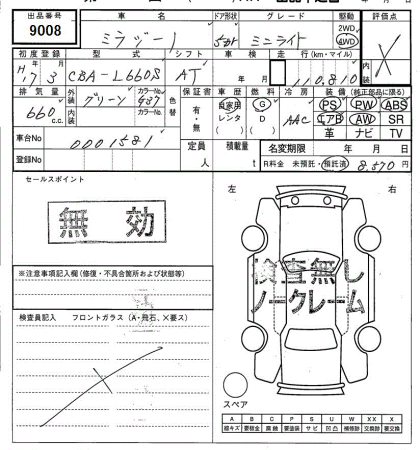 出品番号 車名 ドア形状 グレード 駆動 評価点
9008 ミラジーノ 5dr ミニライト 2WD 4WD
初度登録 型式 シフト 車検 走行(km・マイル) 内装
H17 3 CBA-L660S AT 年 月 110,810
排気量 外装 グリーン カラーNo. G37 色替 保証書 車歴 燃料 冷房 装備(純正部品に限る)
660 c.c. 内装 カラーNo. 有・無 自家用 レンタ ( ) G D ( ) AAC PS PW ABS
エアB AW SR
革 ナビ TV
車台No 0001581 定員 人 積載量 t 名変期限 年 月 日
登録No R料金 未預託・預託済 8,570 円
セールスポイント
無効
左 右
※注意事項記入欄(修復・不具合箇所および状態等)
検査無し
ノークレーム
検査員記入 フロントガラス(A・飛石、X要ス)
スペア
A B C P S U W X XX